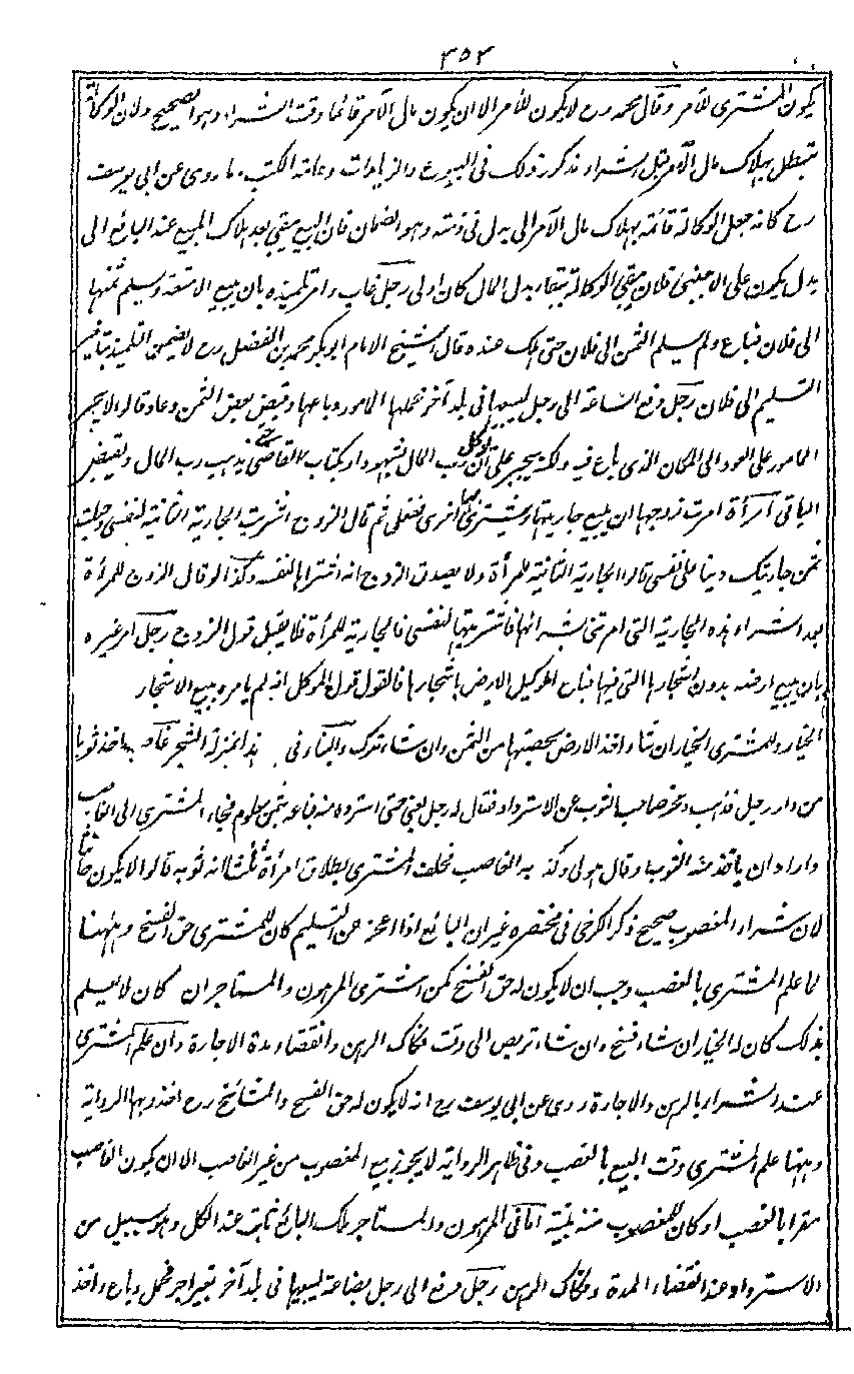 ٣٥٣
يكون المشترى للآمر وقال محمد رح لا يكون للآمر الا ان يكون مال الآمر قائما وقت الشراء وهو الصحيح ولان الوكالة
تبطل بهلاك مال الآمر قبل الشراء ذكر ذلك فى البيوع والزيادات وعامة الكتب ما روى عن ابى يوسف
رح كانه جعل الوكالة قائمة بهلاك مال الآمر الى بدل فى ذمته وهو الضمان فان البيع يبقى بعد هلاك المبيع عند البائع الى
بدل يكون على الاجنبى فلان يبقى الوكالة ببقاء بدل المال كان اولى رجل غاب وامر تلميذه بان يبيع الامتعة ويسلم ثمنها
الى فلان فباع ولم يسلم الثمن الى فلان حتى هلك عنده قال الشيخ الامام ابو بكر محمد بن الفضل رح لا يضمن التلميذ بتأخير
التسليم الى فلان رجل دفع المتاعة الى رجل ليبيعها فى بلد آخر فحملها المامور وباعها وقبض بعض الثمن وعاد قالوا لا يجبر
المامور على العود الى المكان الذى باع فيه ولكنه يجبر على ان يوكل رب المال بشهود او بكتاب القاضى حتى يذهب رب المال ويقبض
الباقى امرأة امرت زوجها ان يبيع جاريتها ويشترى لها اخرى ففعل ثم قال الزوج اشتريت الجارية الثانية لنفسى وجعلت
ثمن جاريتك دينا على نفسى قالوا الجارية الثانية للمرأة ولا يصدق الزوج انه اشتراها لنفسه وكذا لو قال الزوج للمرأة
بعد الشراء هذه الجارية التى امرتنى بشرائها فاشتريتها لنفسى فالجارية للمرأة فلا يقبل قول الزوج رجل امر غيره
بان يبيع ارضه بدون اشجارها التى فيها فباع الوكيل الارض باشجارها فالقول قول الموكل انه لم يامره ببيع الاشجار
الخيار وللمشترى الخيار ان شاء اخذ الارض بحصتها من الثمن وان شاء ترك والبناء فى هذا بمنزلة الشجر غاصب اخذ ثوبا
من دار رجل فذهب وعجز صاحب الثوب عن الاسترداد فقال له رجل بعنى حتى استرده منه فباعه بثمن معلوم فجاء المشترى الى الغاصب
واراد ان ياخذ منه الثوب وقال هو لى وكذبه الغاصب فحلف المشترى بطلاق امرأة ثلثا انه ثوبه قالوا لا يكون حانثا
لان شراء المغصوب صحيح ذكر الكرخى فى مختصره غير ان البائع اذا عجز عن التسليم كان للمشترى حق الفسخ وههنا
لما علم المشترى بالغصب وجب ان لا يكون له حق الفسخ كمن اشترى المرهون والمستاجر ان كان لا يعلم
بذلك كان له الخيار ان شاء فسخ وان شاء تربص الى وقت فكاك الرهن وانقضاء مدة الاجارة وان علم المشترى
عند الشراء بالرهن والاجارة روى عن ابى يوسف رح انه لا يكون له حق الفسخ والمشائخ رح اخذوا بهذا الرواية
وههنا علم المشترى وقت البيع بالغصب وفى ظاهر الرواية لا يجوز بيع المغصوب من غير الغاصب الا ان يكون الغاصب
مقرا بالغصب او كان للمغصوب منه بينة اما فى المرهون والمستاجر ملك البائع ثابت عند الكل وهو سبيل من
الاسترداد عند انقضاء المدة وفكاك الرهن رجل دفع الى رجل بضاعة ليبيعها فى بلد آخر بغير اجر فحمل وباع واخذ